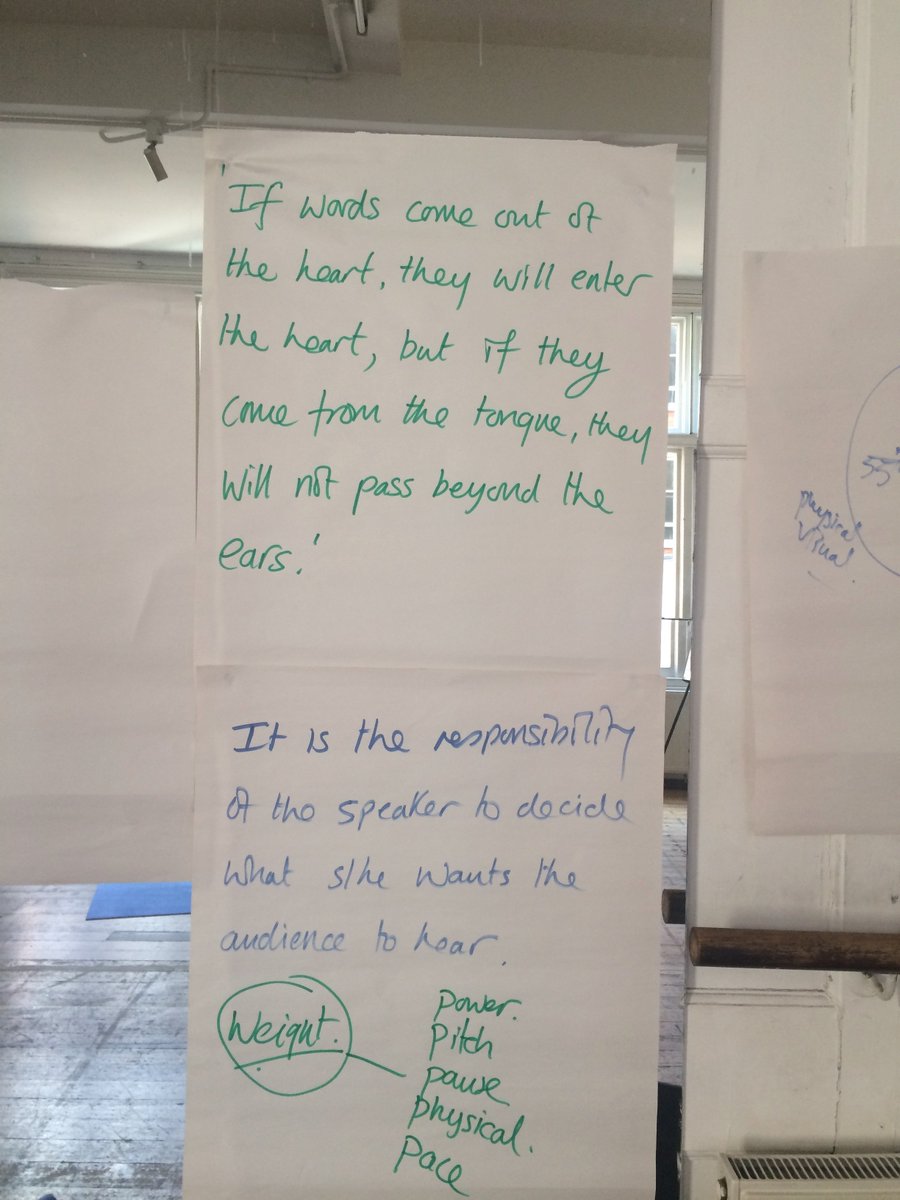 'If words come out of
the heart, they will enter
the heart, but if they
come from the tongue, they
will not pass beyond the
ears.'
It is the responsibility
of the speaker to decide
what s/he wants the
audience to hear.
Weight.
power.
Pitch
pause
physical.
Pace
55
physical
Visual